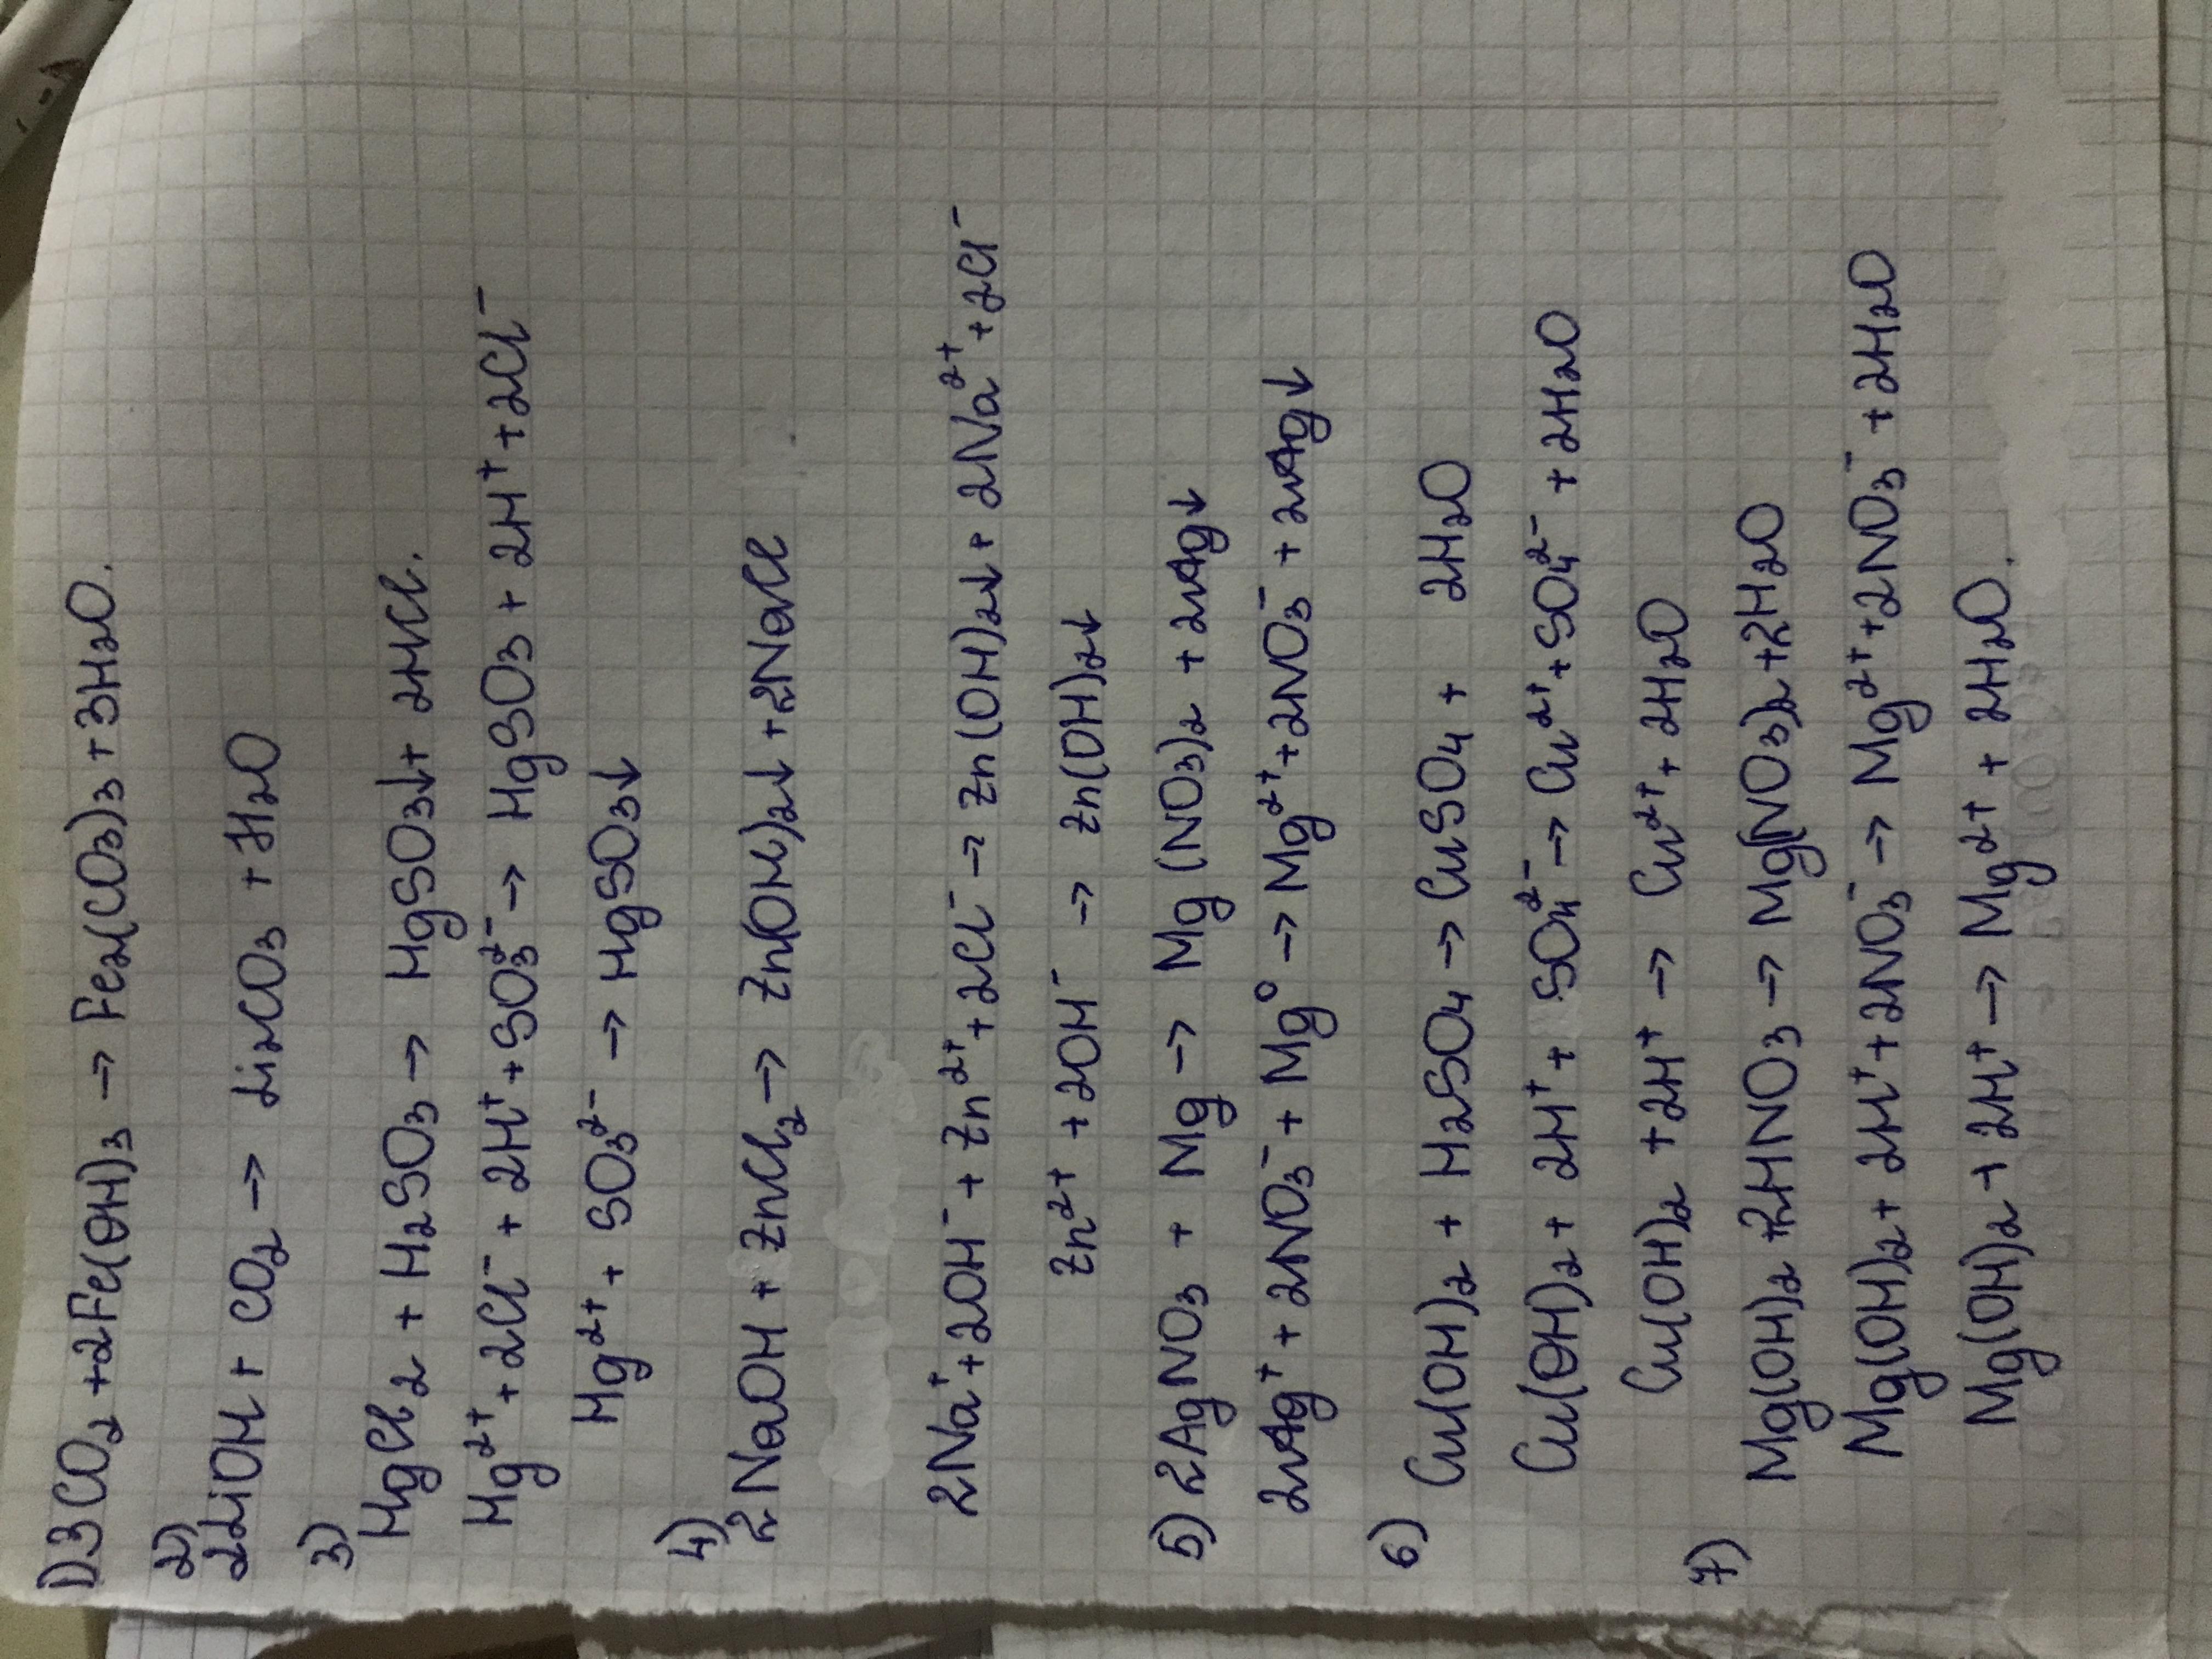 1) 3CO₂ + 2Fe(OH)₃ → Fe₂(CO₃)₃ + 3H₂O.
2)
2LiOH + CO₂ → Li₂CO₃ + H₂O
3)
HgCl₂ + H₂SO₃ → HgSO₃↓ + 2HCl.
Hg²⁺ + 2Cl⁻ + 2H⁺ + SO₃²⁻ → HgSO₃ + 2H⁺ + 2Cl⁻
Hg²⁺ + SO₃²⁻ → HgSO₃↓
4)
2NaOH + ZnCl₂ → Zn(OH)₂↓ + 2NaCl
2Na⁺ + 2OH⁻ + Zn²⁺ + 2Cl⁻ → Zn(OH)₂↓ + 2Na²⁺ + 2Cl⁻
Zn²⁺ + 2OH⁻ → Zn(OH)₂↓
5) 2AgNO₃ + Mg → Mg(NO₃)₂ + 2Ag↓
2Ag⁺ + 2NO₃⁻ + Mg⁰ → Mg²⁺ + 2NO₃⁻ + 2Ag↓
6)
Cu(OH)₂ + H₂SO₄ → CuSO₄ + 2H₂O
Cu(OH)₂ + 2H⁺ + SO₄²⁻ → Cu²⁺ + SO₄²⁻ + 2H₂O
Cu(OH)₂ + 2H⁺ → Cu²⁺ + 2H₂O
7)
Mg(OH)₂ + 2HNO₃ → Mg(NO₃)₂ + 2H₂O
Mg(OH)₂ + 2H⁺ + 2NO₃⁻ → Mg²⁺ + 2NO₃⁻ + 2H₂O
Mg(OH)₂ + 2H⁺ → Mg²⁺ + 2H₂O.